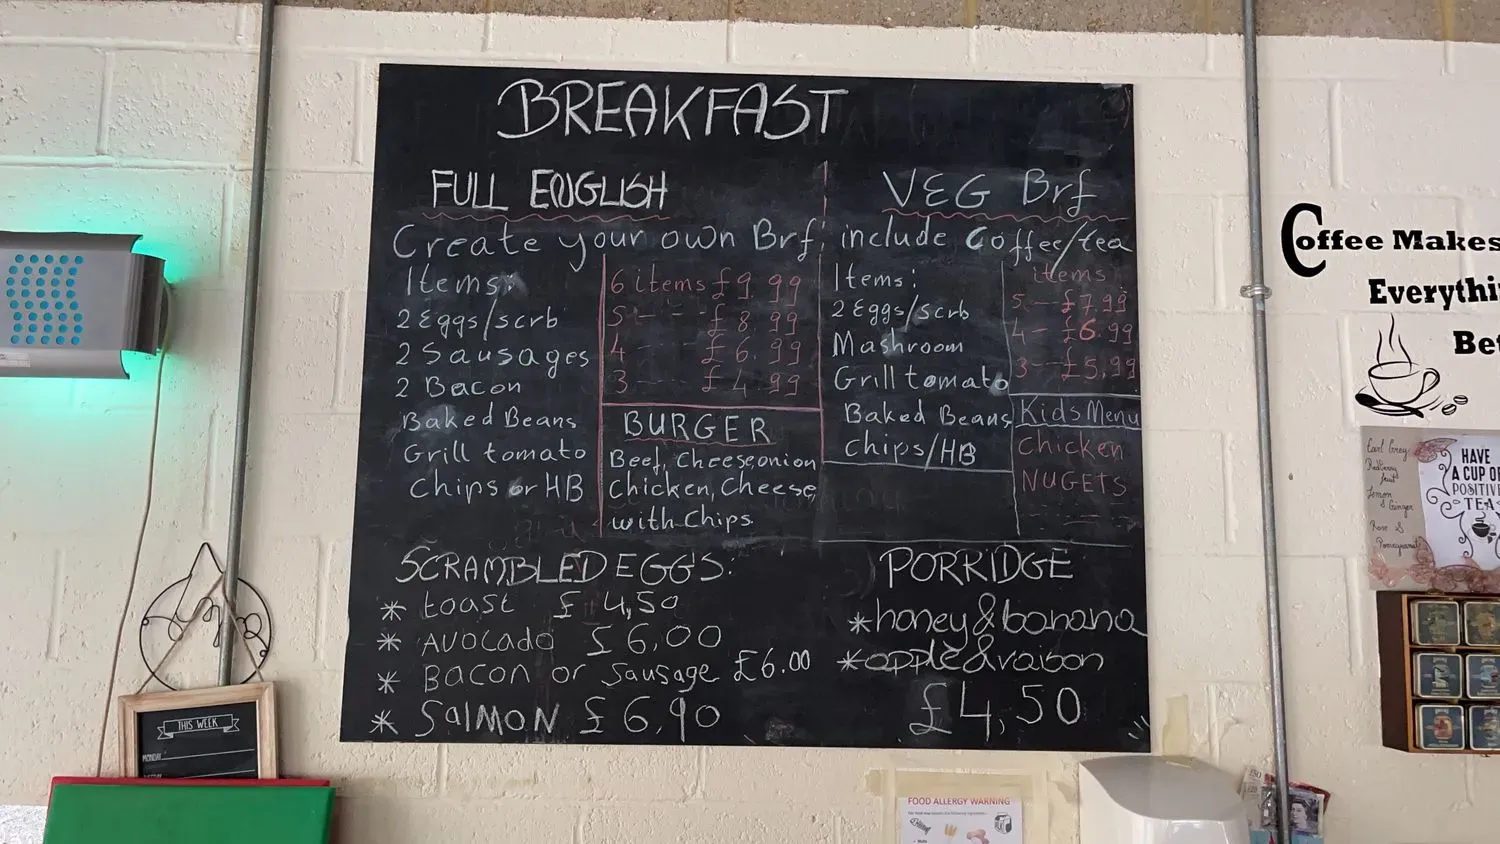 BREAKFAST
FULL ENGLISH
Create your own Brf, include Coffee/tea
Items:
2 Eggs/scrb
2 Sausages
2 Bacon
Baked Beans
Grill tomato
Chips or HB
6 items £9.99
5 --- £8.99
4 ---- £6.99
3 ---- £4.99
BURGER
Beef, Cheese,onion
Chicken, Cheese,
with Chips
VEG Brf
Items:
2 Eggs/scrb
Mashroom
Grill tomato
Baked Beans
Chips/HB
items
5 -- £7.99
4 - £6.99
3 -- £5.99
Kids Menu
Chicken
NUGETS
SCRAMBLED EGGS:
* toast £ 4,50
* AVOCADO £6,00
* Bacon or Sausage £6.00
* SalMON £6,90
PORRIDGE
*honey&banana
*apple&raison
£4,50
Coffee Makes
Everythi
Bet
Earl Grey
Lemon
& Ginger
Rose &
Pomegranate
HAVE
A CUP OF
POSITIVE
TEA
THIS WEEK
MONDAY
FOOD ALLERGY WARNING